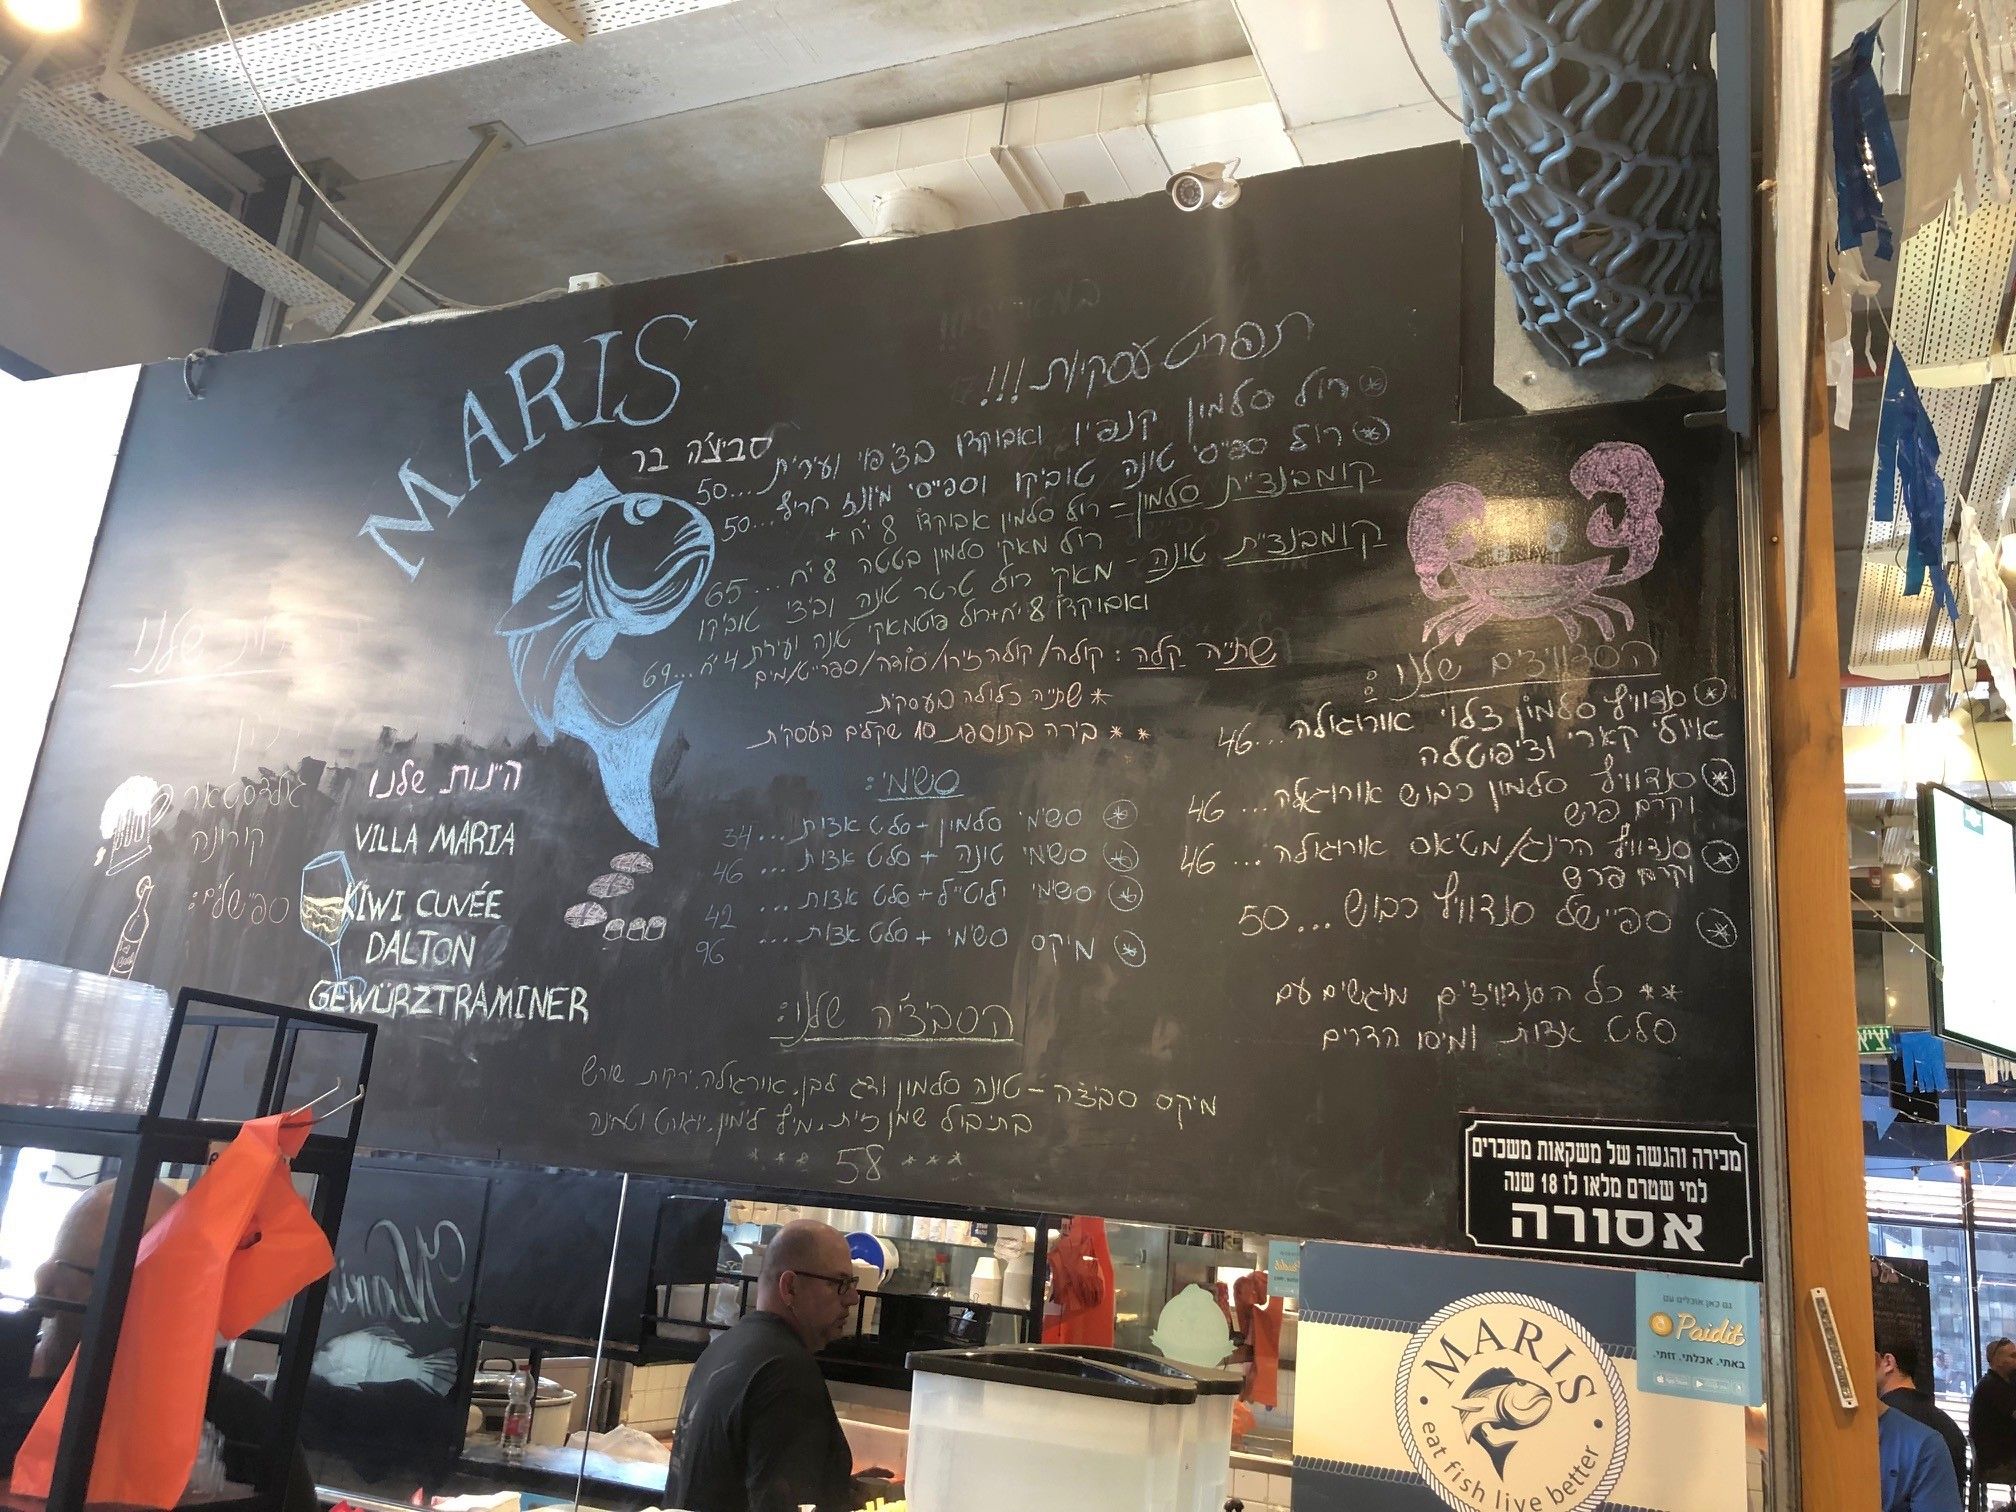 MARIS
סביצ'ה בר
תפריט עסקיות!!!
רול סלמון קנפיו ואבוקדו בציפוי ועירית ...50
רול ספייסי טונה טוביקו וספייסי מיונז חריף ...50
קומבנציית סלמון – רול סלמון אבוקדו 8 יח' +
רול מאקי סלמון בטטה 8 יח' ...65
קומבנציית טונה - מאקי רול טרטר טונה וביצי טוביקו
ואבוקדו 8 יח'+רול פוטומאקי טונה ועירית 4 יח' ...69
שתייה קלה: קולה/קולה זירו/סודה/ספרייט/מים
* שתייה כלולה בעסקית
** בירה בתוספת 10 שקלים בעסקית
סשימי:
סשימי סלמון + סלט אצות ...34
סשימי טונה + סלט אצות ...46
סשימי ילוטייל + סלט אצות ...42
מיקס סשימי + סלט אצות ...96
הסביצ'ה שלנו:
מיקס סביצ'ה – טונה סלמון ודג לבן, אורוגולה, ירקות שורש
בתיבול שמן זית, מיץ לימון, יוגורט וטחינה
*** 58 ***
הסנדוויצ'ים שלנו:
סנדוויץ סלמון צלוי אורוגולה ...46
איולי קארי וצ'יפוטלה
סנדוויץ סלמון כבוש אורוגולה ...46
וקרם פרש
סנדוויץ הרינג/מטיאס אורוגולה ...46
וקרם פרש
ספיישל סנדוויץ כבוש ...50
** כל הסנדוויצ'ים מוגשים עם
סלט אצות ומיסו הדרים
שלנו
גולדסטאר
קורונה
ספיישלים:
היינות שלנו
VILLA MARIA
KIWI CUVÉE
DALTON
GEWÜRZTRAMINER
מכירה והגשה של משקאות משכרים
למי שטרם מלאו לו 18 שנה
אסורה
גם כאן אוכלים עם
Paidit
באתי. אכלתי. זזתי.
MARIS
eat fish live better
Maris